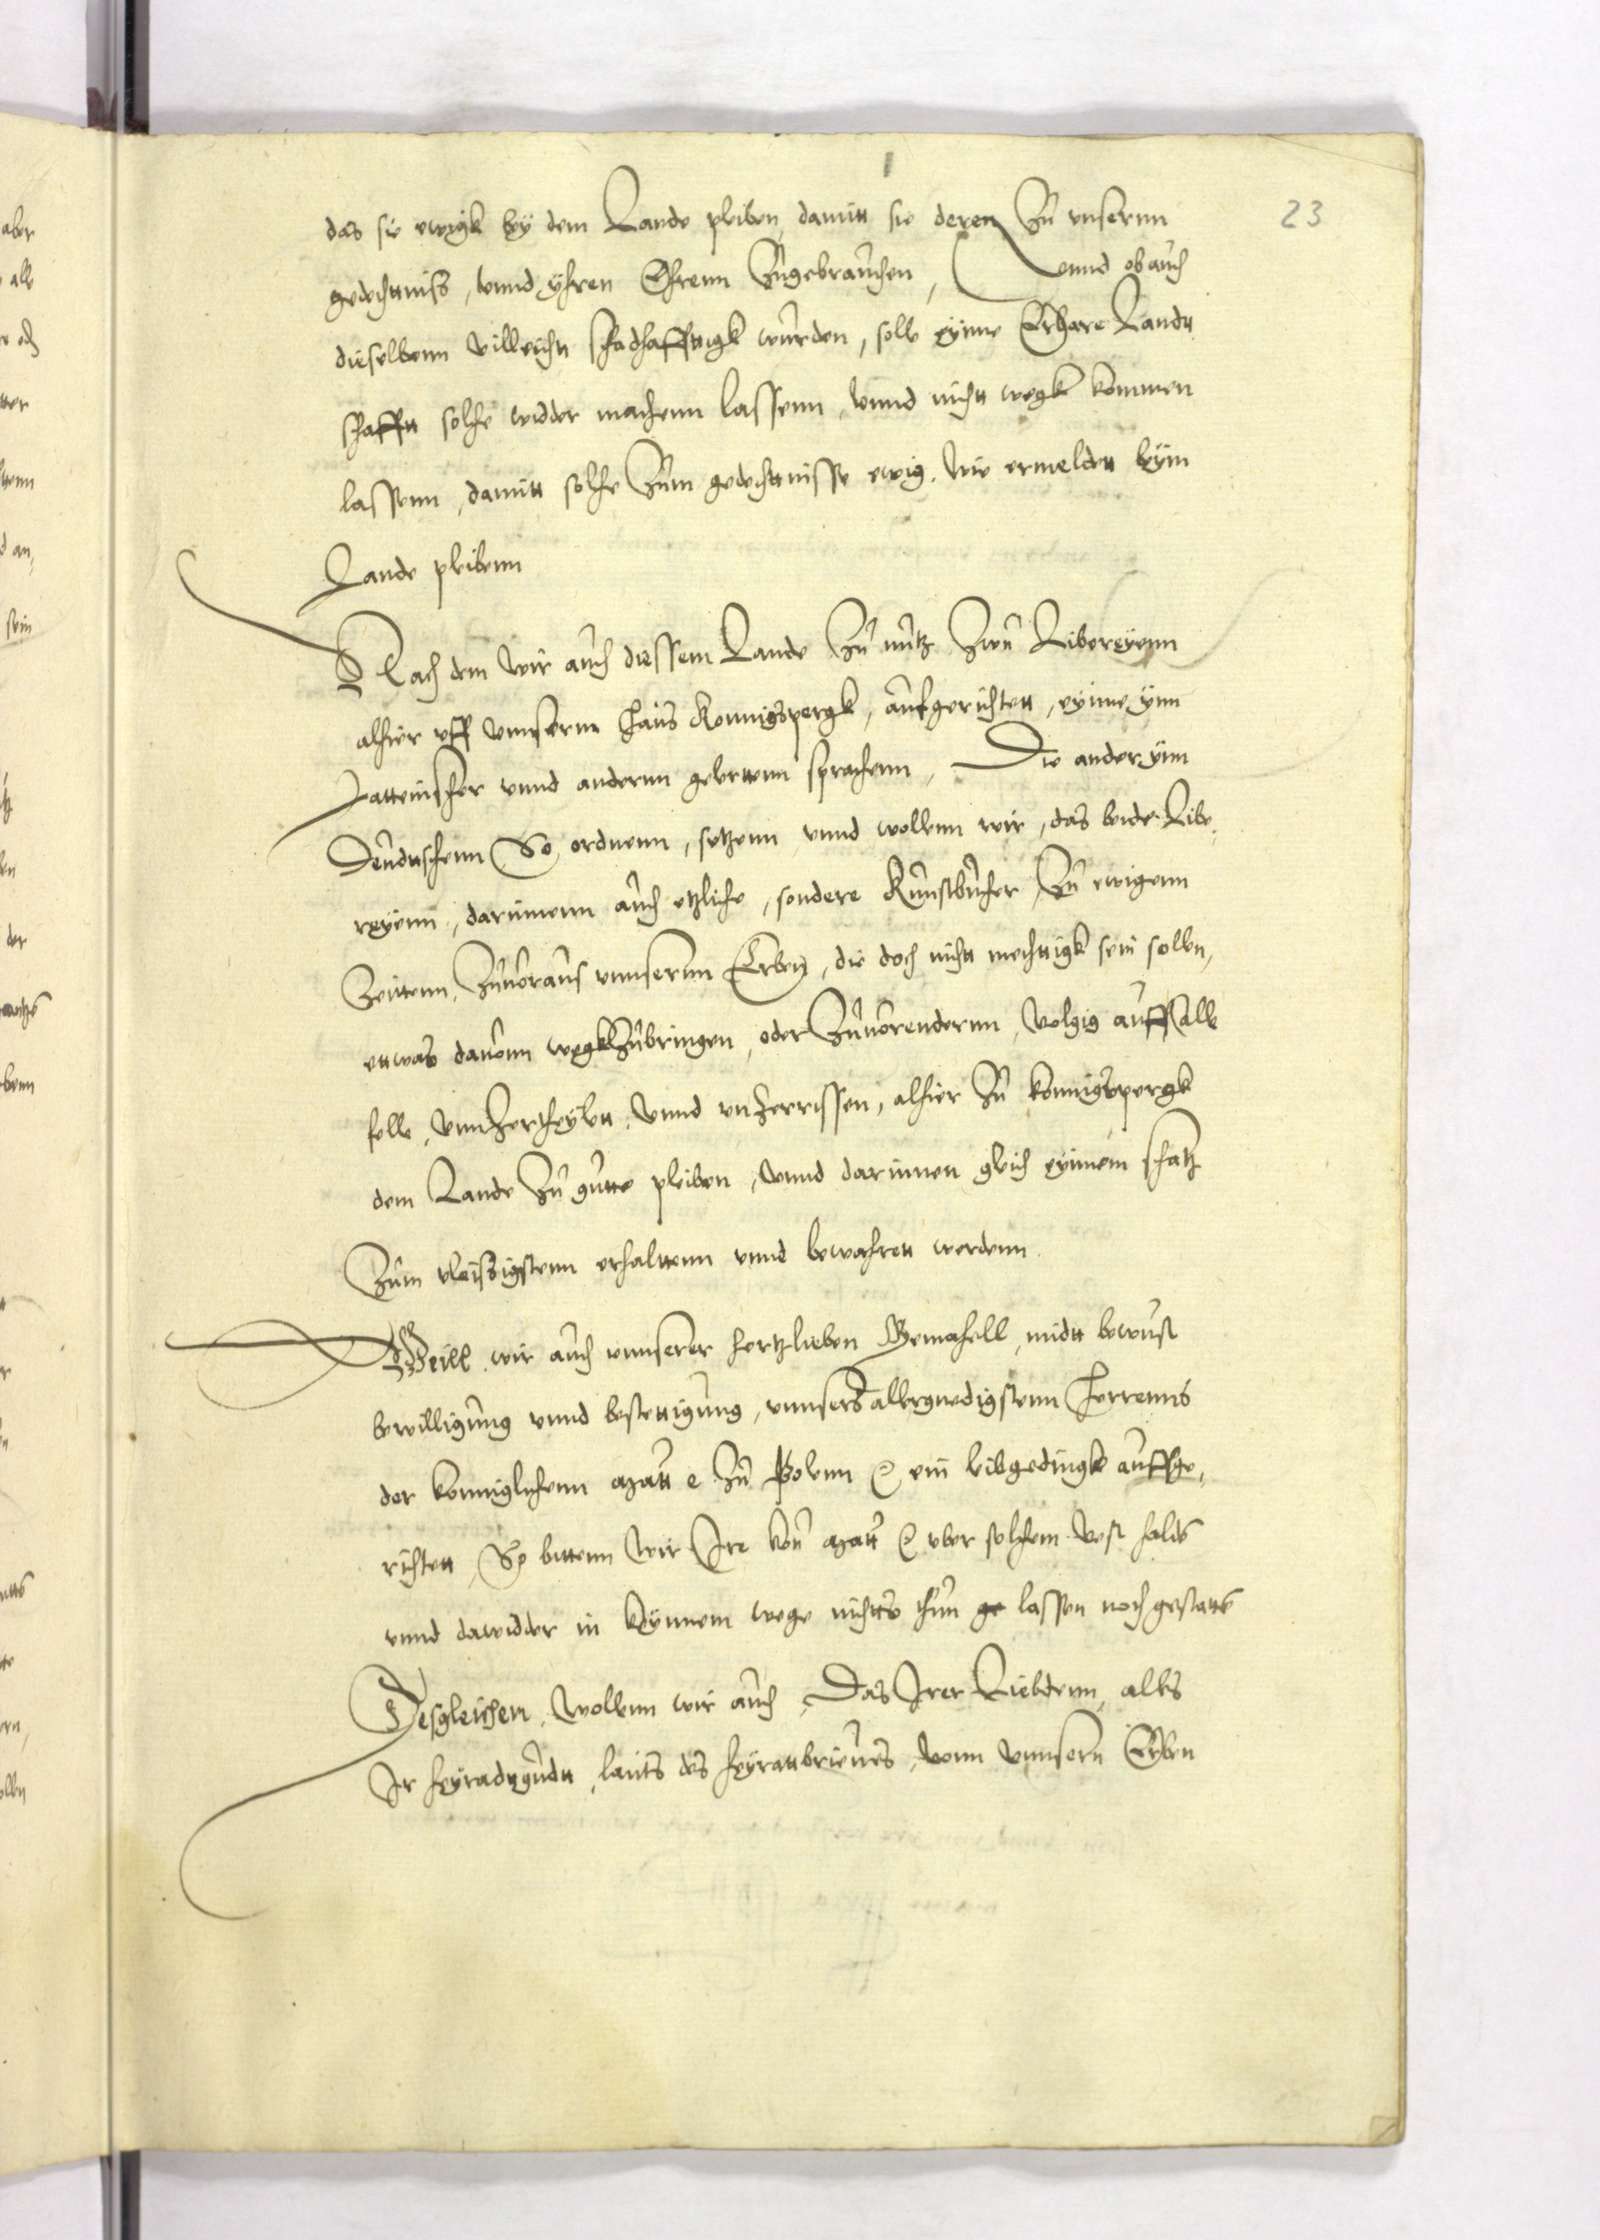 23
das sie ewigk bey dem Lande pleiben, damitt sie deren Zu unsernn
gedechttniss, unnd yhren Ehrenn Zugebrauchen, Unnd ob auch
dieselbenn villeicht schadhafftigk wurden, solle eynne Erbare Landt
schafftt solche widder machenn lassenn, unnd nicht wegk kommen
lassenn, damitt solche Zum gedechttnisse ewig, wie ermeldtt beym
Lande pleibenn
Nach dem wir auch diessem Lande Zu nutz Zwu Libereyenn
alhier uff unnserm Haus Konnigspergk, aufgerichtett, eynne ynn
Latteinischer unnd andernn gelertten sprachenn, Die ander ynn
Deudtschenn So ordnenn, setzenn unnd wollenn wir, das beide Libe,
reyenn, darinnenn auch etzliche, sondere Kunstbucher, Zu ewigenn
Zeittenn, Zuvoraus unnserenn Erben, die doch nicht mechttigk sein sollen,
ettwas davonn wegkZubringen, oder Zuvorendernn, volgig auff alle
felle, unnZertheylett, unnd unZerrissen, alhier Zu konnigspergk
dem Lande Zu gutte pleiben, unnd darinnen gleich eynnem schatz
Zum vleissigstenn erhalttenn unnd bewahrett werdenn.
Weill wir auch unnserer hertzlieben Gemahell, midtt bewust
bewilligung unnd bestettigung, unnsers allergnedigstenn Herrenns
der konniglichenn Matt e Zu Polenn etc ein leibgedingk auffge,
richtett, So bittenn Wir Ire kon Matt etc uber solchem vest halten
unnd dawidder in keynnem wege nichtts thun ge lassen noch gestatten
Desgleichen, wollenn wir auch, Das Irer Liebdenn, alles
Ir heyradtgudtt, lauts des heyrattbrieues, vonn unnsern Erben